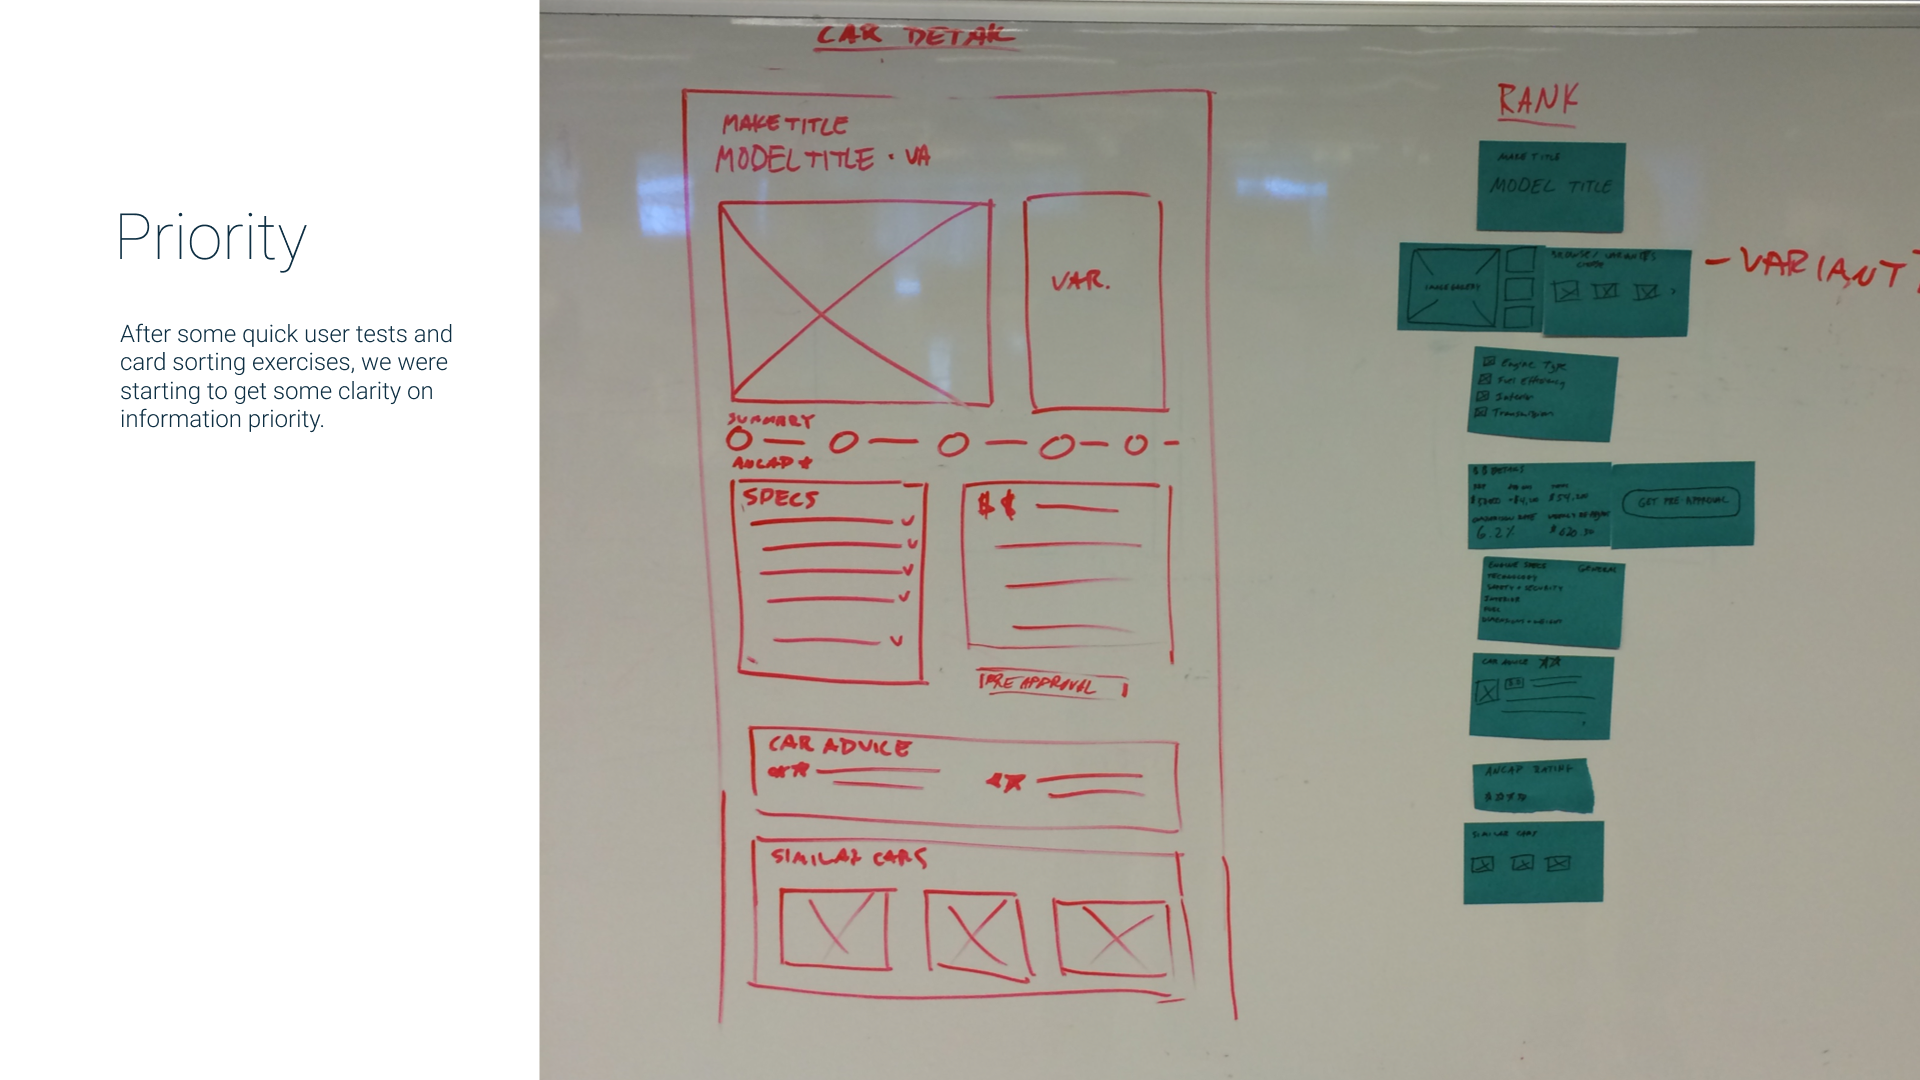 Priority
After some quick user tests and
card sorting exercises, we were
starting to get some clarity on
information priority.
CAR DETAIL
MAKE TITLE
MODEL TITLE · VA
VAR.
SUMMARY
ANCAP
SPECS
$$
PRE APPROVAL
CAR ADVICE
SIMILAR CARS
RANK
MAKE TITLE
MODEL TITLE
IMAGE GALLERY
VARIANTS
- VARIANT
Engine Type
Fuel Efficiency
Interior
Transmission
$$ DETAILS
6.2%
$620.30
GET PRE APPROVAL
ENGINE SPECS GENERAL
TECHNOLOGY
SAFETY + SECURITY
INTERIOR
FUEL
DIMENSIONS + WEIGHT
CAR ADVICE
ANCAP RATING
SIMILAR CARS